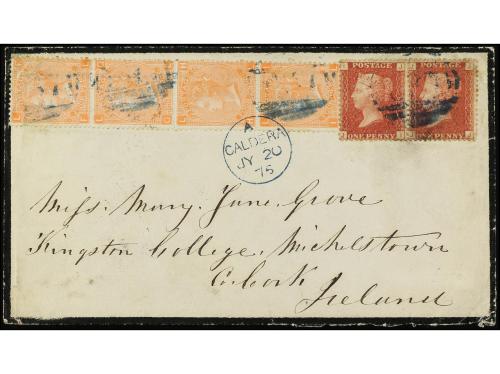 POSTAGE POSTAGE
ONE PENNY ONE PENNY
A
CALDERA
JY 20
75
Miss Mary Jane Grove
Kingston College, Michelstown
Co. Cork
Ireland